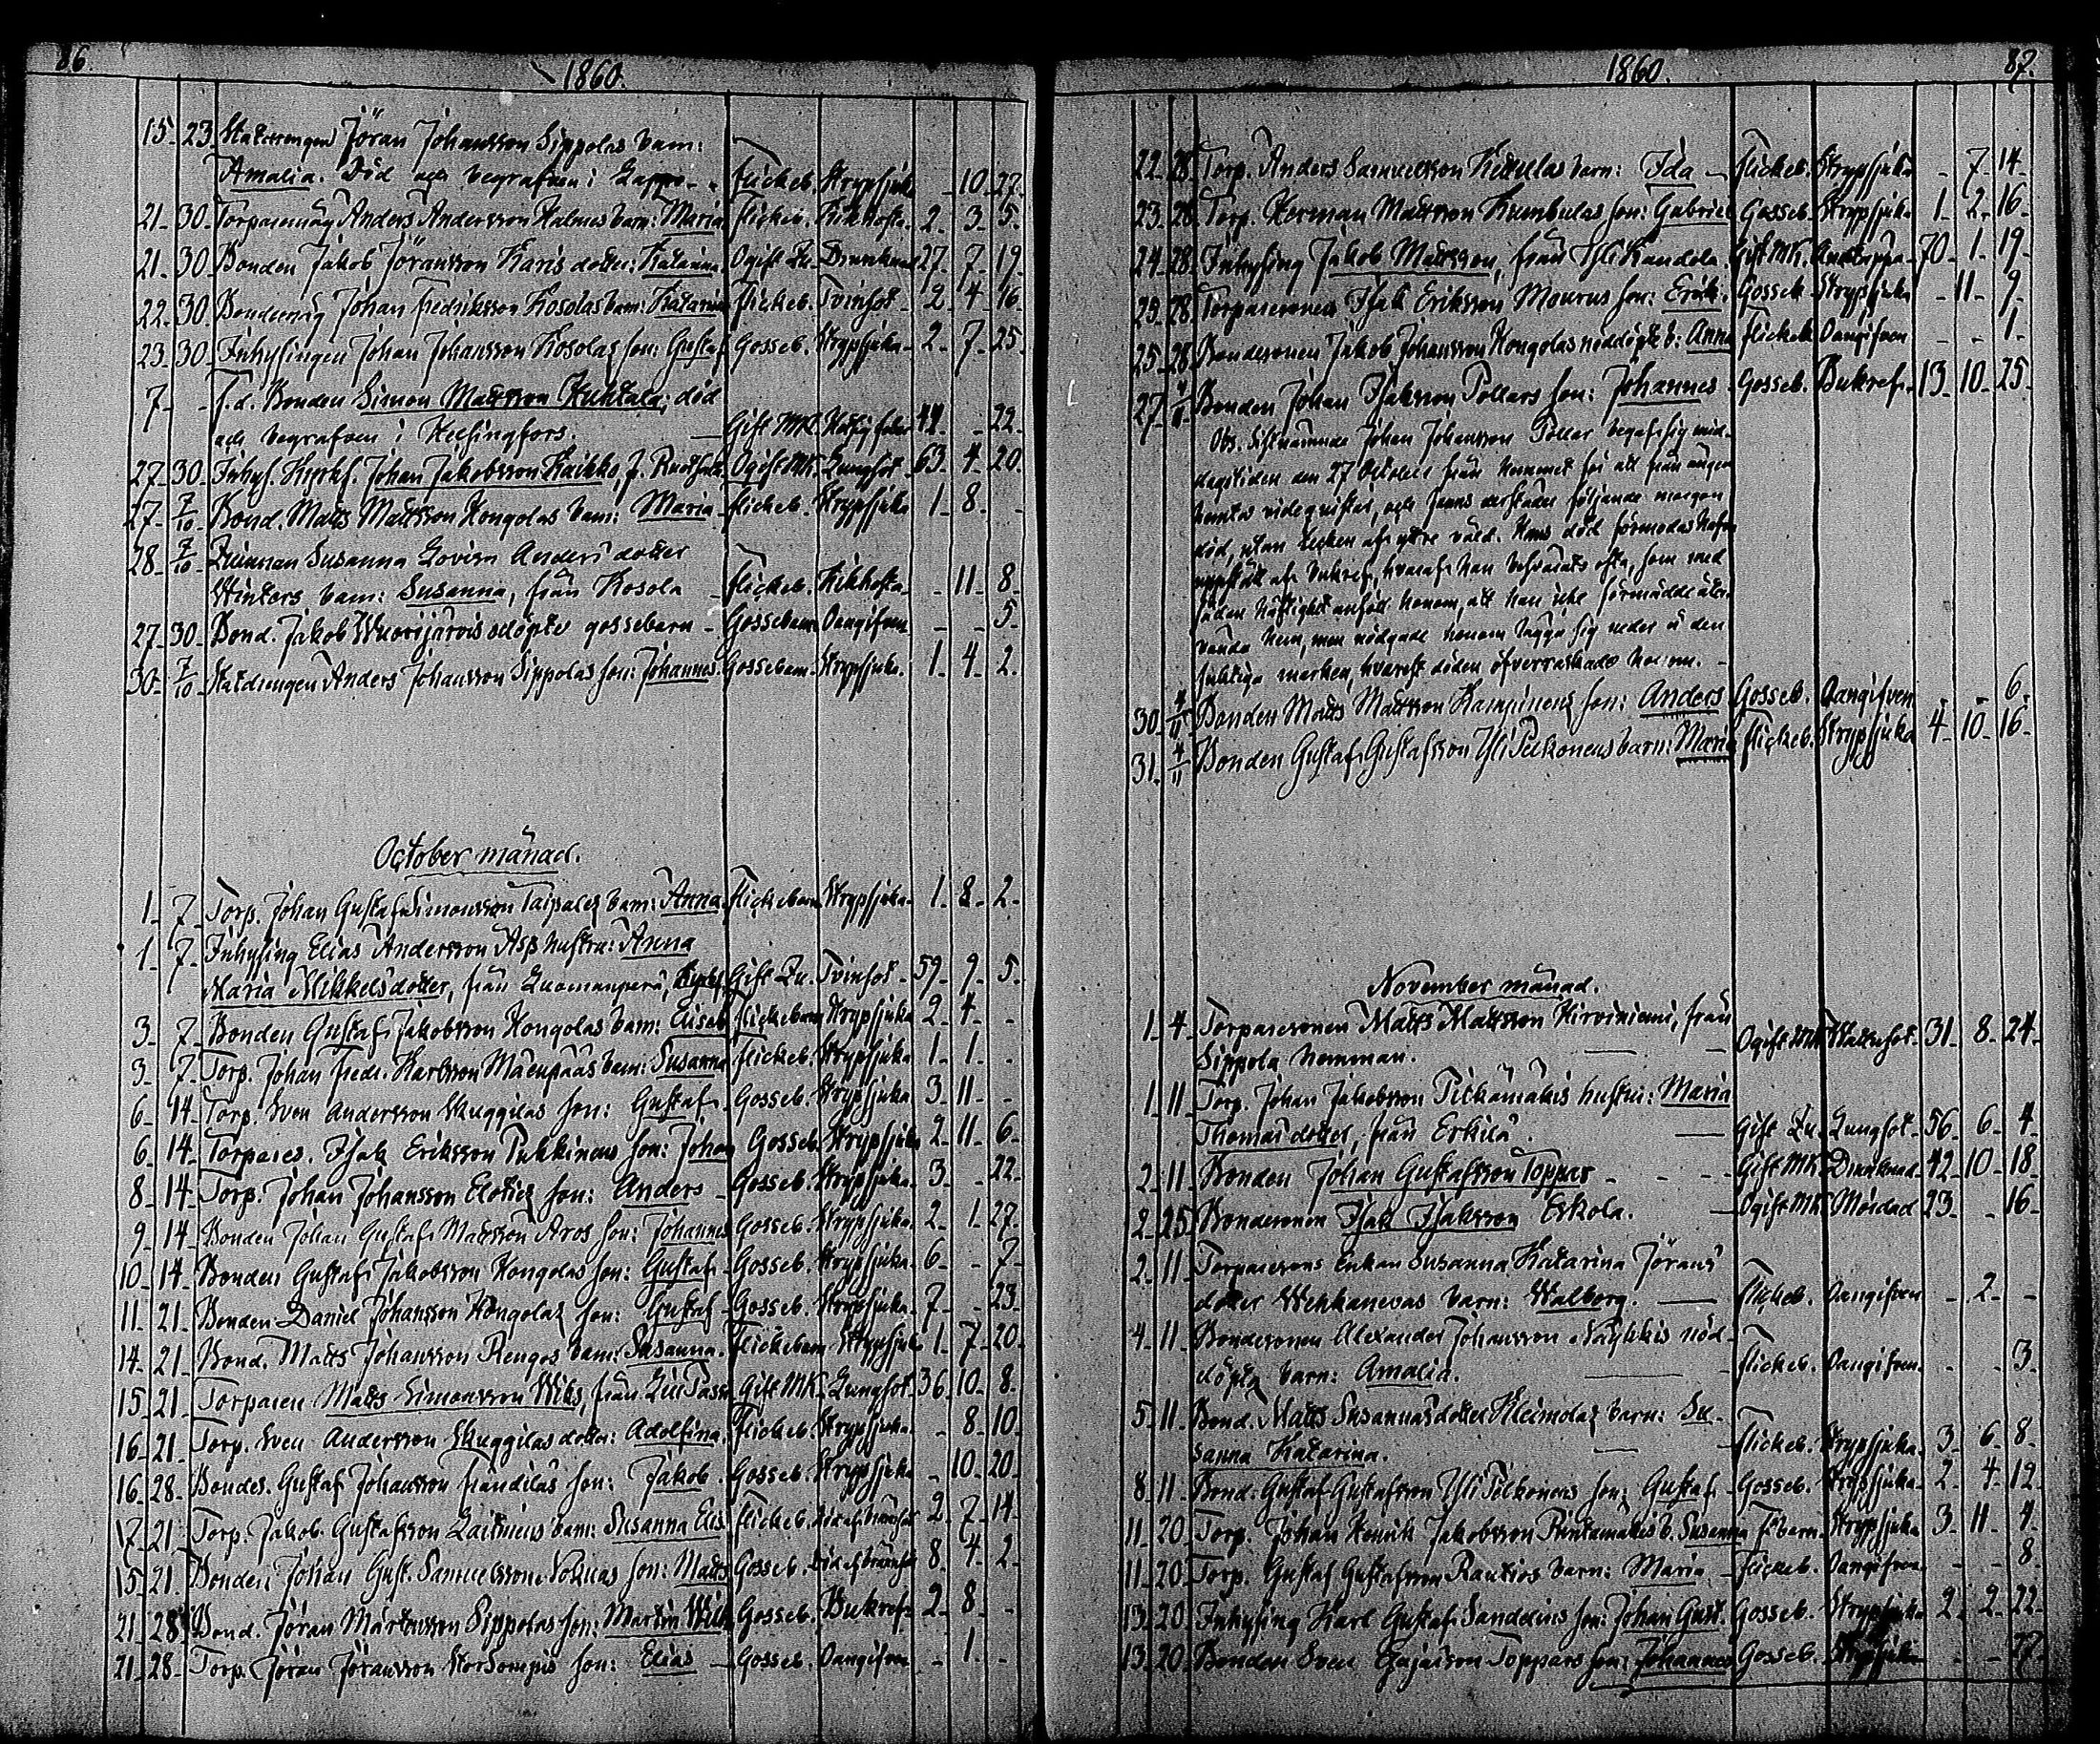 86.
1860.
15. 23. Statdrengen Jöran Johansson Sippolas barn:
Amalia. Död och begrafven i Lappo. Flickeb. Strypsjuka - 10. 27.
21. 30. Torparemåg Anders Andersson Halmes barn: Maria Flickeb. Kikhosta. 2. 3. 5.
21. 30. Bonden Jakob Jöransson Karis dotter: Katarina. Ogift Qu. Drunknad 27. 7. 19.
22. 30. Bondemåg Johan Fredriksson Kosolas barn: Katarina Flickeb. Tvinsot 2. 4. 16.
23. 30. Inhysingen Johan Johansson Kosolas son: Gustaf Gosseb. Strypsjuka 2. 7. 25.
7. - F.d. Bonden Simon Mattsson Huhtala; död
och begrafven i Helsingfors. Gift MK. 44. - 22.
27. 30. Inhys. Johan Jakobsson Kaikko, Ogift MK. Lungsot 63. 4. 20.
27. 7/10 Bond. Matts Mattsson Kongolas barn: Maria Flickeb. Strypsjuka 1. 8. -
28. 7/10 Qvinnan Susanna Lovisa Anders dotter
Winters barn: Susanna, från Kosola Flickeb. Kikhosta. - 11. 8.
27. 30. Bond. Jakob Wuorijärvis odöpte gossebarn - Gossebarn Oangifven - - 5.
30. 7/10 Statdrengen Anders Johansson Sippolas son: Johannes. Gossebarn Strypsjuka. 1. 4. 2.
October månad.
1. 7. Torp. Johan Gustaf Simonsson Taipales barn: Anna. Flickebarn Strypsjuka. 1. 8. 2.
1. 7. Inhysing Elias Andersson Asp hustru: Anna
Maria Mikkelsdotter, från Luomanperä, Gift Qu. Tvinsot 59. 9. 5.
3. 7. Bonden Gustaf Jakobsson Kongolas barn: Elisab Flickebarn Strypsjuka 2. 4. -
3. 7. Torp. Johan Fredr. Karlsson Mäenpääs barn: Susanna Flickeb. Strypsjuka 1. 1. -
6. 14. Torp. Sven Andersson Skuggilas son: Gustaf. Gosseb. Strypsjuka 3. 11. -
6. 14. Torpares. Isak Eriksson Pukkinens son: Johan Gosseb. Strypsjuka 2. 11. 6.
8. 14. Torp. Johan Johansson son: Anders Gosseb. Strypsjuka. 3. - 22.
9. 14. Bonden Johan Gustaf Mattsson Aros son: Johannes Gosseb. Strypsjuka. 2. 1. 27.
10. 14. Bonden Gustaf Jakobsson Kongolas son: Gustaf Gosseb. Strypsjuka. 6. - 7.
11. 21. Bonden Daniel Johansson Kongolas son: Gustaf Gosseb. Strypsjuka. 7. - 23.
14. 21. Bond. Matts Johansson Rengos barn: Susanna. Flickebarn Strypsjuk 1. 7. 20.
15. 21. Torparen Matts Simonsson Wiks, från Gift MK. Lungsot 36. 10. 8.
16. 21. Torp. Sven Andersson Skuggilas dotter: Adolfina. Flickeb. Strypsjuka. - 8. 10.
16. 28. Bondes. Gustaf Johansson Frändiläs son: Jakob. Gosseb. Strypsjuka - 10. 20.
17. 21. Torp. Jakob Gustafsson Laitinens barn: Susanna Elis. Flickeb. 2. 7. 14.
15. 21. Bonden Johan Gust. Samuelsson son: Matts Gosseb. 8. 4. 2.
21. 28. Bond. Jöran Mårtensson Sippolas son: Martin Wilh. Gosseb. Bukref. 2. 8. -
21. 28. Torp. Jöran Jöransson son: Elias Gosseb. Oangifven - 1. -
1860.
87.
22. 28. Torp. Anders Samuelsson Kettulas barn: Ida Flickeb. Strypsjuka - 7. 14.
23. 28. Torp. Herman Mattsson Kumbulas son: Gabriel Gosseb. Strypsjuka 1. 2. 16.
24. 28. Inhysing Jakob Mattsson, från Yli Kandola. Gift MK. Andtäppa 70. 1. 19.
25. 28. Torparesonen Isak Eriksson Mourus son: Erik. Gosseb. Strypsjuka - 11. 9.
25. 28. Bondesonen Jakob Johansson Kongolas nöddöpte b: Anna Flickeb. Oangifven - - 1.
27. Bonden Johan Isaksson Pollars son: Johannes. Gosseb. Bukref. 13. 10. 25.
Obs. Sistnämnde Johan Johansson Pollar begaf sig mid-
dagstiden den 27 October från hemmet för att från ängen
hemta videqvistar, och fanns derstädes följande morgon
död, utan tecken af yttre våld. Hans död förmodas hafva
uppstått af bukref, hvaraf han besvärats ofta, som med
sådan häftighet anföll honom, att han icke förmådde åter-
vända hem, men nödgade honom lägga sig neder å den
fuktiga marken, hvarest döden öfverraskade honom.
30. 4/11 Bonden Matts Mattsson Kampinens son: Anders Gosseb. Oangifven - - 6.
31. 4/11 Bonden Gustaf Gustafsson Yli Pelkonens barn: Maria Flickeb. Strypsjuka 4. 10. 16.
November månad.
1. 4. Torparesonen Matts Mattsson Hirviniemi, från
Sippola hemman. Ogift MK 31. 8. 24.
1. 11. Torp. Johan Jakobsson hustru: Maria
Thomas dotter, från Erkilä. Gift Qu. Lungsot. 56. 6. 4.
2. 11. Bonden Johan Gustafsson Toppar - Gift MK. Drunknad. 42. 10. 18.
2. 25. Bondesonen Isak Isaksson Eskola. Ogift MK. Mördad. 23. - 16.
2. 11. Torparesons Enkan Susanna Katarina Jörans
dotter Wehkanevas barn: Walborg. Flickeb. Oangifven - 2. -
4. 11. Bondesonen Alexander Johansson Näykkis nöd-
döpta barn: Amalia. Flickeb. Oangifven. - - 3.
5. 11. Bond. Matts Susannasdotter Kleimolas barn: Su-
sanna Katarina. Flickeb. Strypsjuka. 3. 6. 8.
8. 11. Bond. Gustaf Gustafsson Yli Pelkonens son: Gustaf. Gosseb. Strypsjuka 2. 4. 12.
11. 20. Torp. Johan Henrik Jakobsson Rintamäkis b. Susanna Fl.barn. Strypsjuka 3. 11. 4.
11. 20. Torp. Gustaf Gustafsson Rautios barn: Maria Flickeb. Oangifven. - - 8.
13. 20. Inhysing Karl Gustaf Sandelins son: Johan Gust. Gosseb. Strypsjuka 2. 2. 22.
13. 20. Bonden Sven Toppars son: Johannes Gosseb. Strypsjuka - - 27.